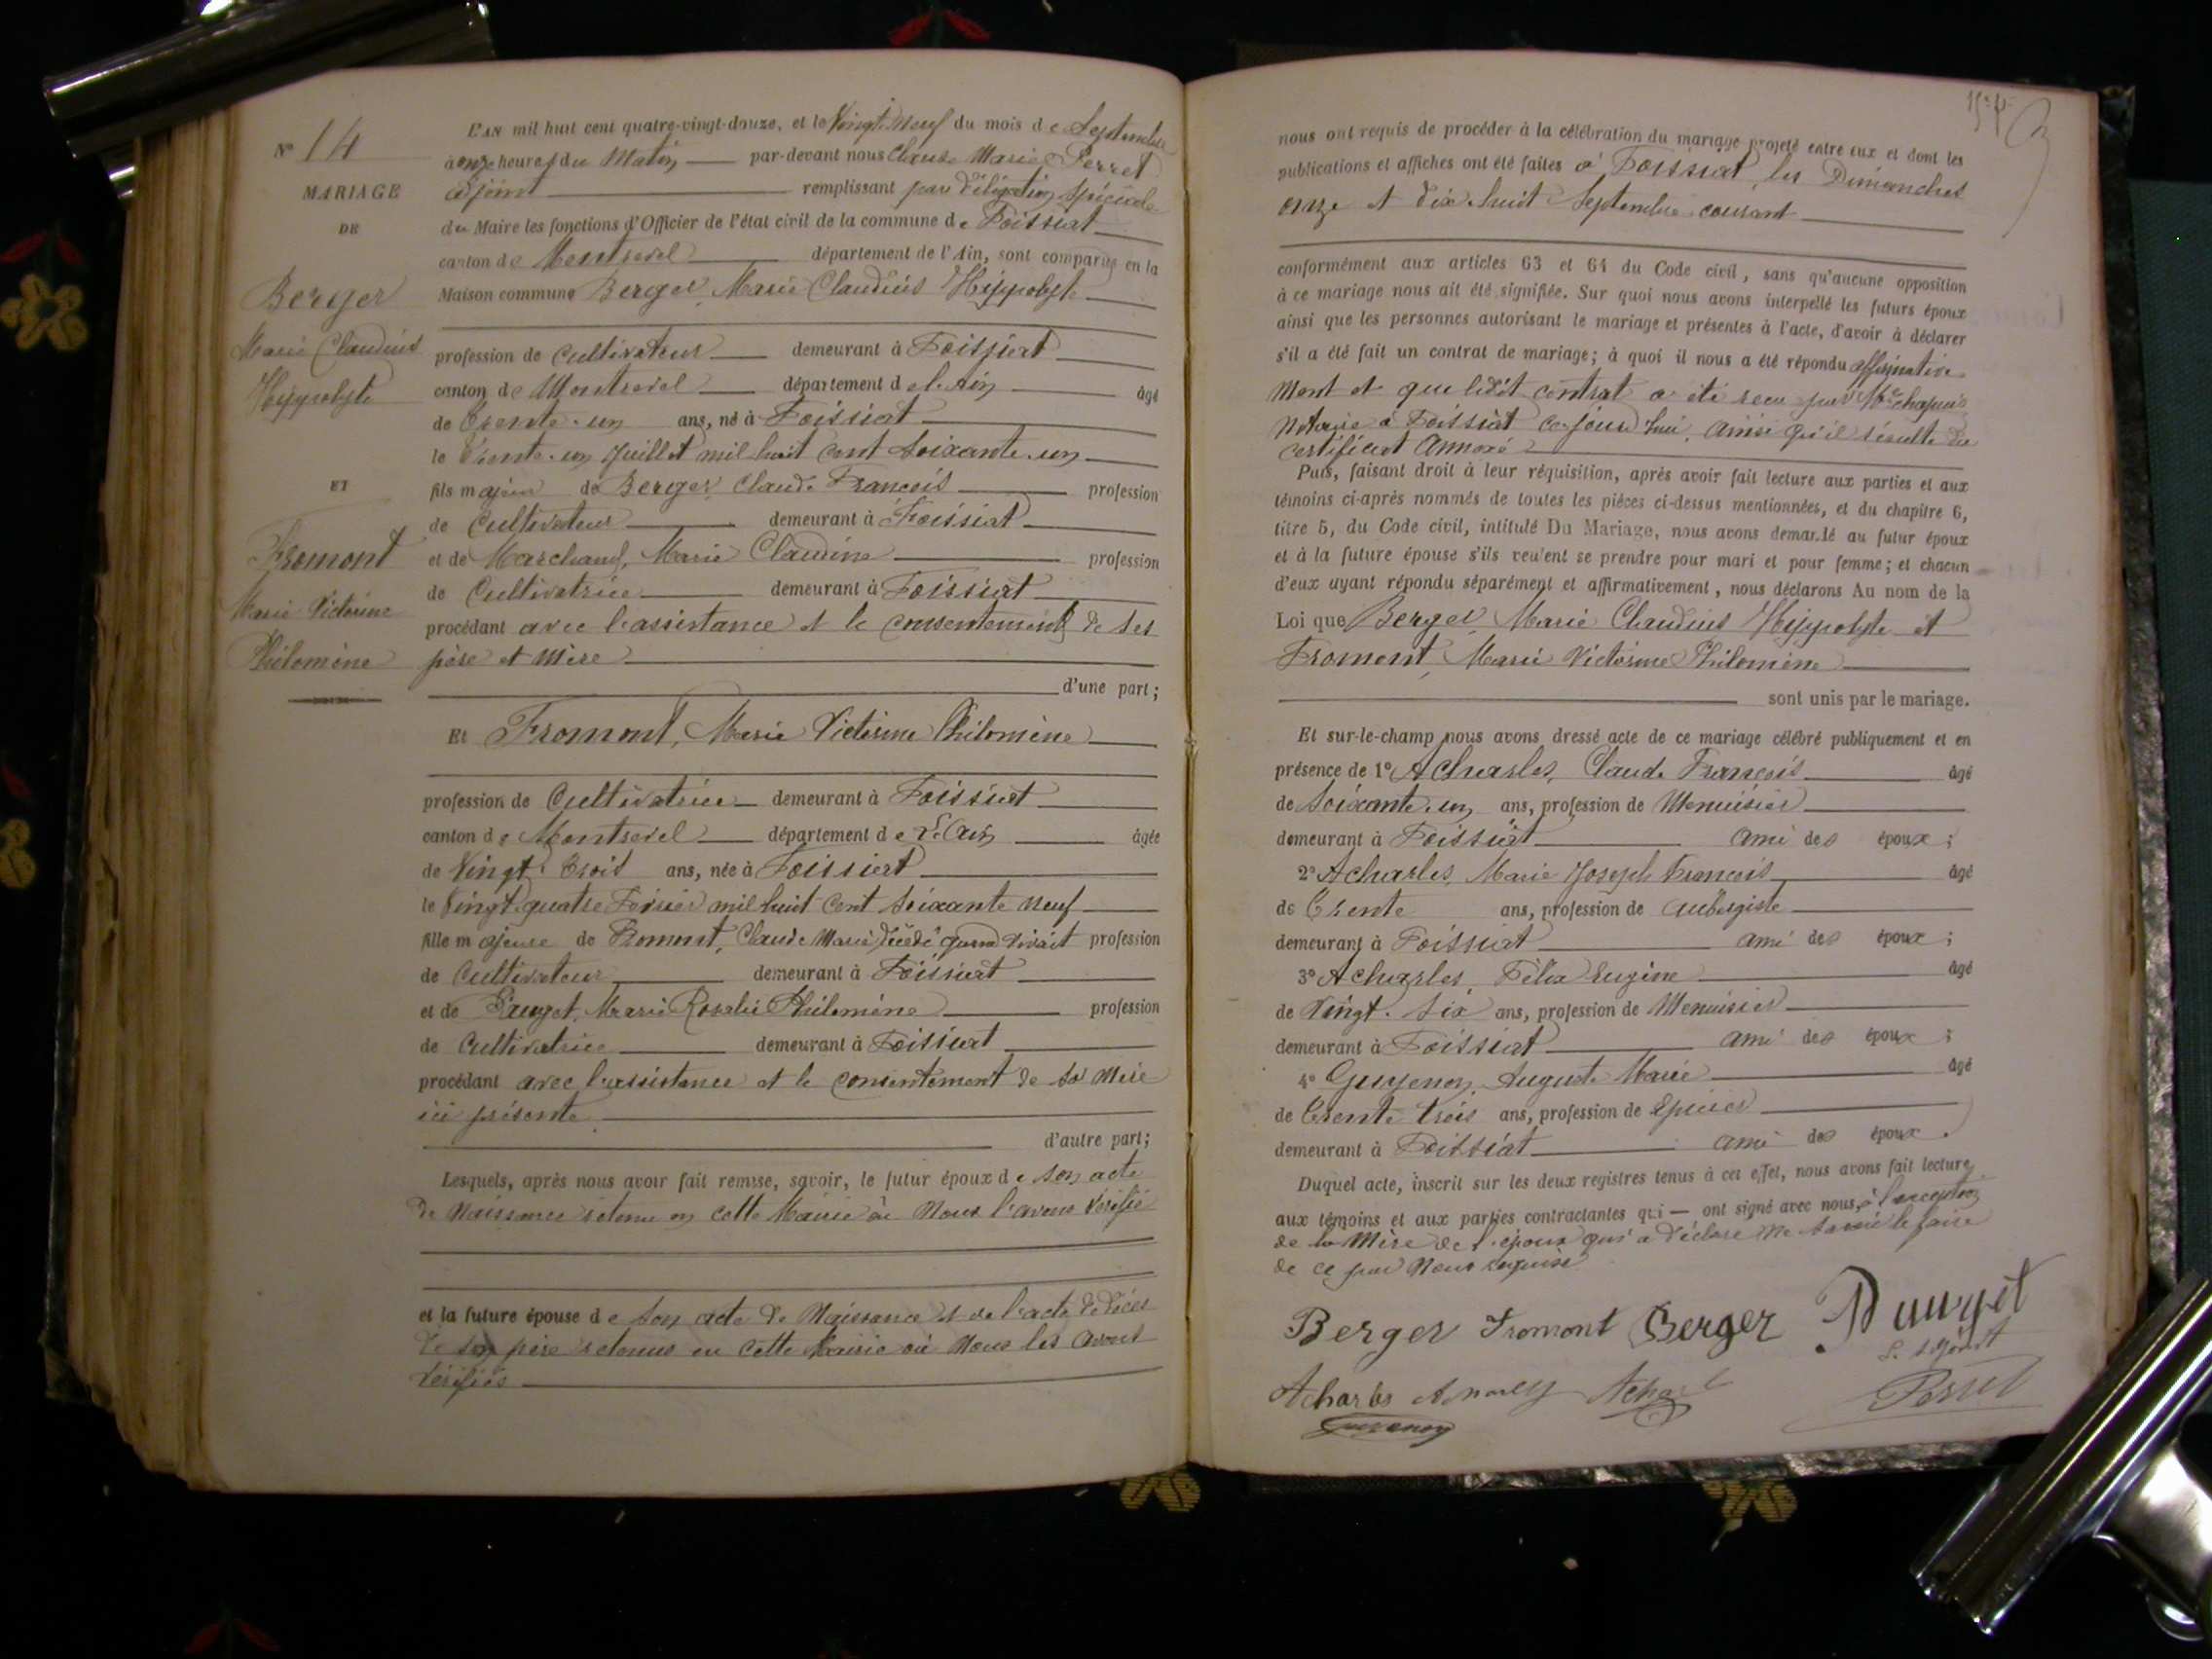 N° 14
MARIAGE
DE
Berger
Marie Claudius
Hyppolyte
ET
Fromont
Marie Victorine
Philomène
L'AN mil huit cent quatre-vingt-douze, et le Vingt Neuf du mois de Septembre
à onze heures du Matin par-devant nous Claude Marie Perret
adjoint remplissant par délégation spéciale
du Maire les fonctions d'Officier de l'état civil de la commune de Foissiat
canton de Montrevel département de l'Ain, sont comparus en la
Maison commune Berger, Marie Claudius Hyppolyte
profession de Cultivateur demeurant à Foissiat
canton de Montrevel département de l'Ain âgé
de Trente-un ans, né à Foissiat
le Trente-un Juillet mil huit cent soixante-un
fils majeur de Berger, Claude François profession
de Cultivateur demeurant à Foissiat
et de Marchand, Marie Claudine profession
de Cultivatrice demeurant à Foissiat
procédant avec l'assistance et le consentement de ses
père et mère
d'une part;
Et Fromont, Marie Victorine Philomène
profession de Cultivatrice demeurant à Foissiat
canton de Montrevel département de l'Ain âgée
de Vingt-Trois ans, née à Foissiat
le Vingt-quatre Février mil huit cent soixante neuf
fille majeure de Fromont, Claude Marie décédé quand vivait profession
de Cultivateur demeurant à Foissiat
et de Pauget, Marie Rosalie Philomène profession
de Cultivatrice demeurant à Foissiat
procédant avec l'assistance et le consentement de sa mère
ici présente
d'autre part;
Lesquels, après nous avoir fait remise, savoir, le futur époux de son acte
de Naissance retenu en cette Mairie où Nous l'avons vérifié
et la future épouse de son acte de Naissance et de l'acte de décès
de son père retenus en cette Mairie où Nous les avons
vérifiés
nous ont requis de procéder à la célébration du mariage projeté entre eux et dont les
publications et affiches ont été faites à Foissiat, les Dimanches
onze et dix-huit Septembre courant
conformément aux articles 63 et 64 du Code civil, sans qu'aucune opposition
à ce mariage nous ait été signifiée. Sur quoi nous avons interpellé les futurs époux
ainsi que les personnes autorisant le mariage et présentes à l'acte, d'avoir à déclarer
s'il a été fait un contrat de mariage; à quoi il nous a été répondu affirmative-
ment et que ledit contrat a été reçu par Me Chapuis
Notaire à Foissiat ce jour d'hui, ainsi qu'il résulte du
certificat annexé
Puis, faisant droit à leur réquisition, après avoir fait lecture aux parties et aux
témoins ci-après nommés de toutes les pièces ci-dessus mentionnées, et du chapitre 6,
titre 5, du Code civil, intitulé Du Mariage, nous avons demandé au futur époux
et à la future épouse s'ils veulent se prendre pour mari et pour femme; et chacun
d'eux ayant répondu séparément et affirmativement, nous déclarons Au nom de la
Loi que Berger, Marie Claudius Hyppolyte et
Fromont, Marie Victorine Philomène
sont unis par le mariage.
Et sur-le-champ nous avons dressé acte de ce mariage célébré publiquement et en
présence de 1° Acharles, Claude François âgé
de Soixante-un ans, profession de Menuisier
demeurant à Foissiat ami des époux;
2° Acharles, Marie Joseph François âgé
de Trente ans, profession de aubergiste
demeurant à Foissiat ami des époux;
3° Acharles, Félix Eugène âgé
de Vingt-Six ans, profession de Menuisier
demeurant à Foissiat ami des époux;
4° Guyenon, Auguste Marie âgé
de Trente trois ans, profession de Epicier
demeurant à Foissiat ami des époux.
Duquel acte, inscrit sur les deux registres tenus à cet effet, nous avons fait lecture
aux témoins et aux parties contractantes qui — ont signé avec nous, à l'exception
de la Mère de l'époux qui a déclaré ne savoir le faire
de ce par Nous requise
Berger Fromont Berger Pauget
L. adjoint
Acharles Acharles
Perret
Guyenon